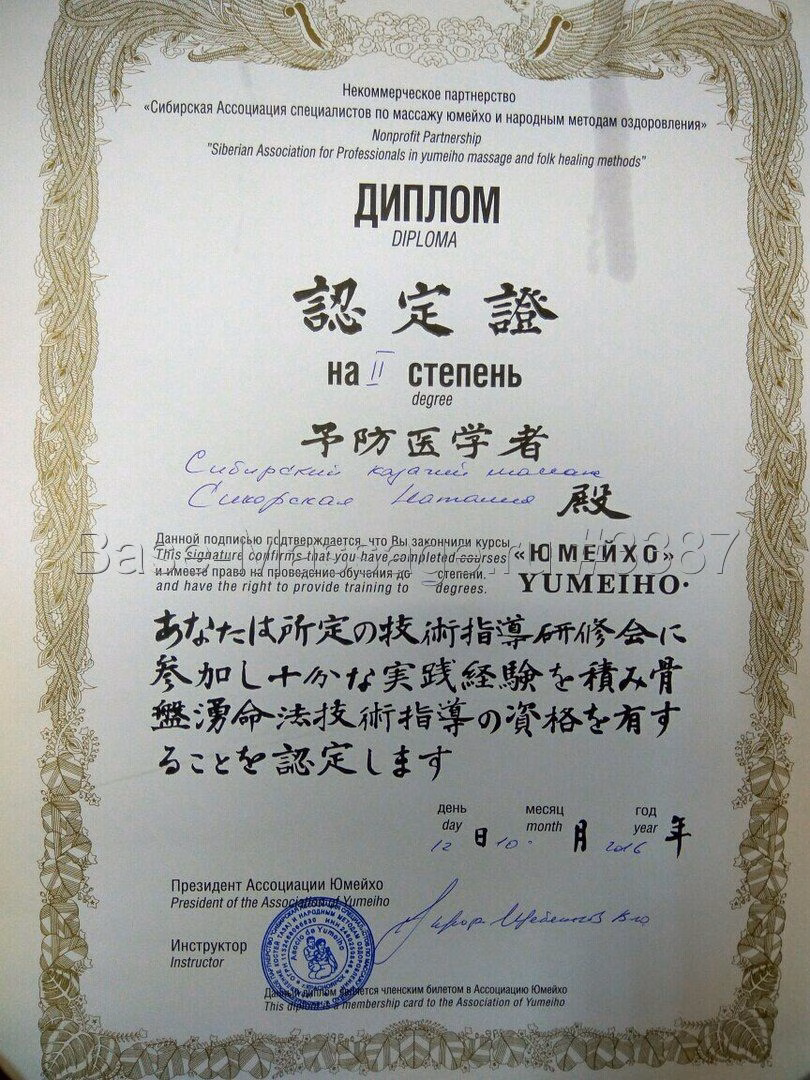 Некоммерческое партнерство
«Сибирская Ассоциация специалистов по массажу юмейхо и народным методам оздоровления»
Nonprofit Partnership
"Siberian Association for Professionals in yumeiho massage and folk healing methods"
ДИПЛОМ
DIPLOMA
認定證
на II степень
degree
予防医学者
Сибирский казачий
Сикорская Наталия 殿
Данной подписью подтверждается, что Вы закончили курсы
This signature confirms that you have completed courses
«ЮМЕЙХО»
и имеете право на проведение обучения до степени.
and have the right to provide training to degrees.
YUMEIHO·
あなたは所定の技術指導研修会に
参加し十分な実践経験を積み骨
盤湧命法技術指導の資格を有す
ることを認定します
день месяц год
day month year
12 日 10 月 2016 年
Президент Ассоциации Юмейхо
President of the Association of Yumeiho
Инструктор
Instructor
Asocio de Yumeiho
Данный диплом является членским билетом в Ассоциацию Юмейхо
This diploma is a membership card to the Association of Yumeiho